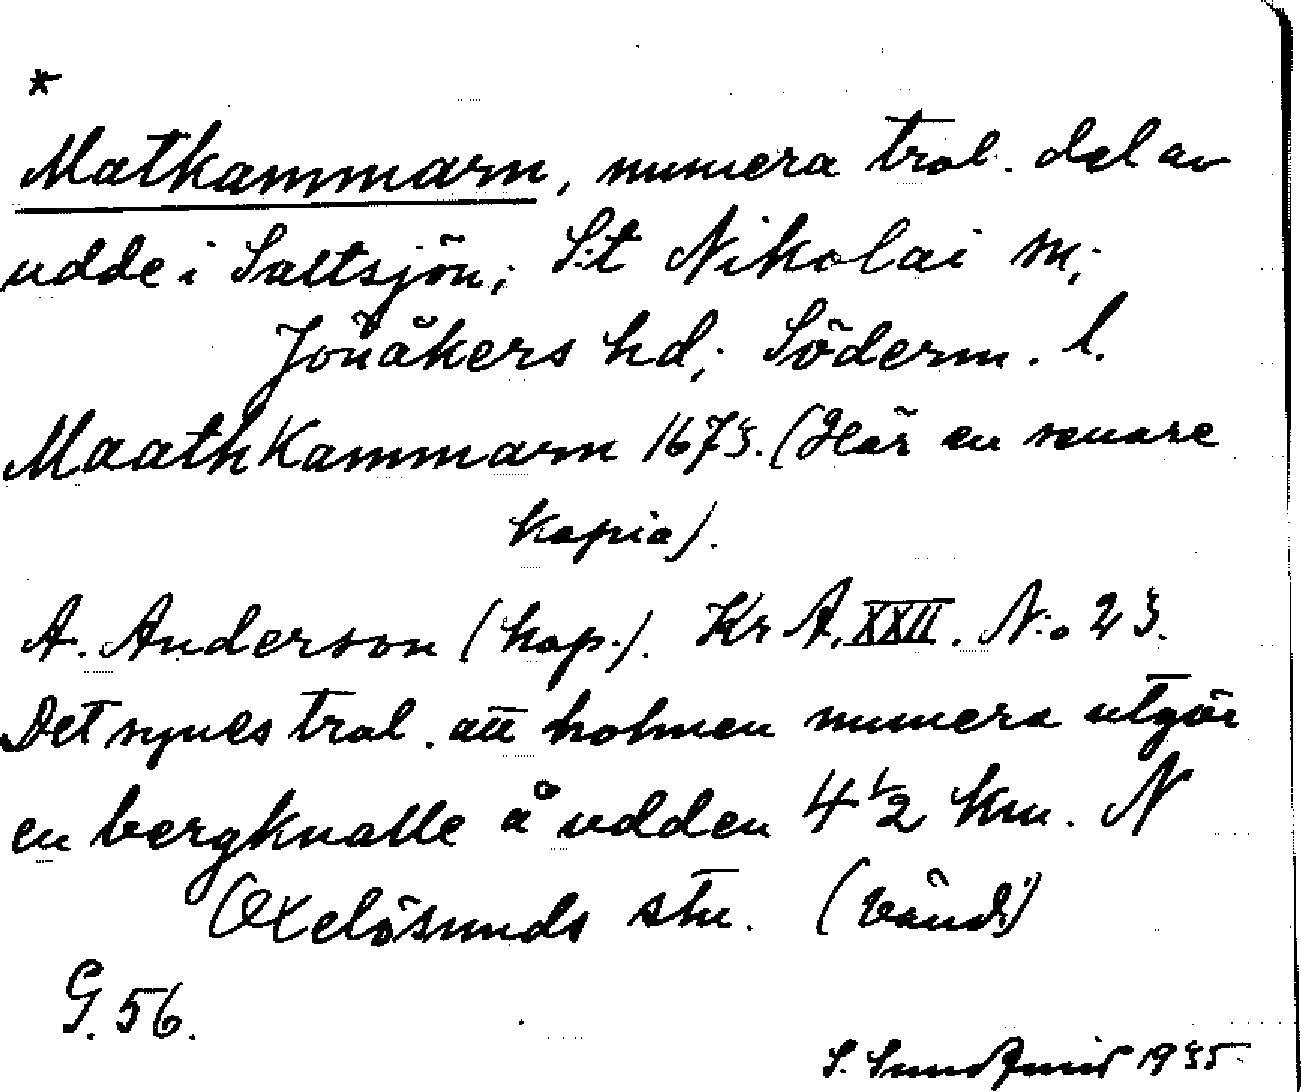 *
Matkammarn, numera trol. del av
udde i Saltsjön; S:t Nikolai sn;
Jönåkers hd; Söderm. l.
MaathKammarn 1673. (Här en senare
kopia).
A. Anderson (kop.). Kr A. XXII. N:o 23.
Det synes trol. att holmen numera utgör
en bergknalle å udden 4 1/2 km. N
Oxelösunds stn. (Vänd!)
G. 56.
S. 1935